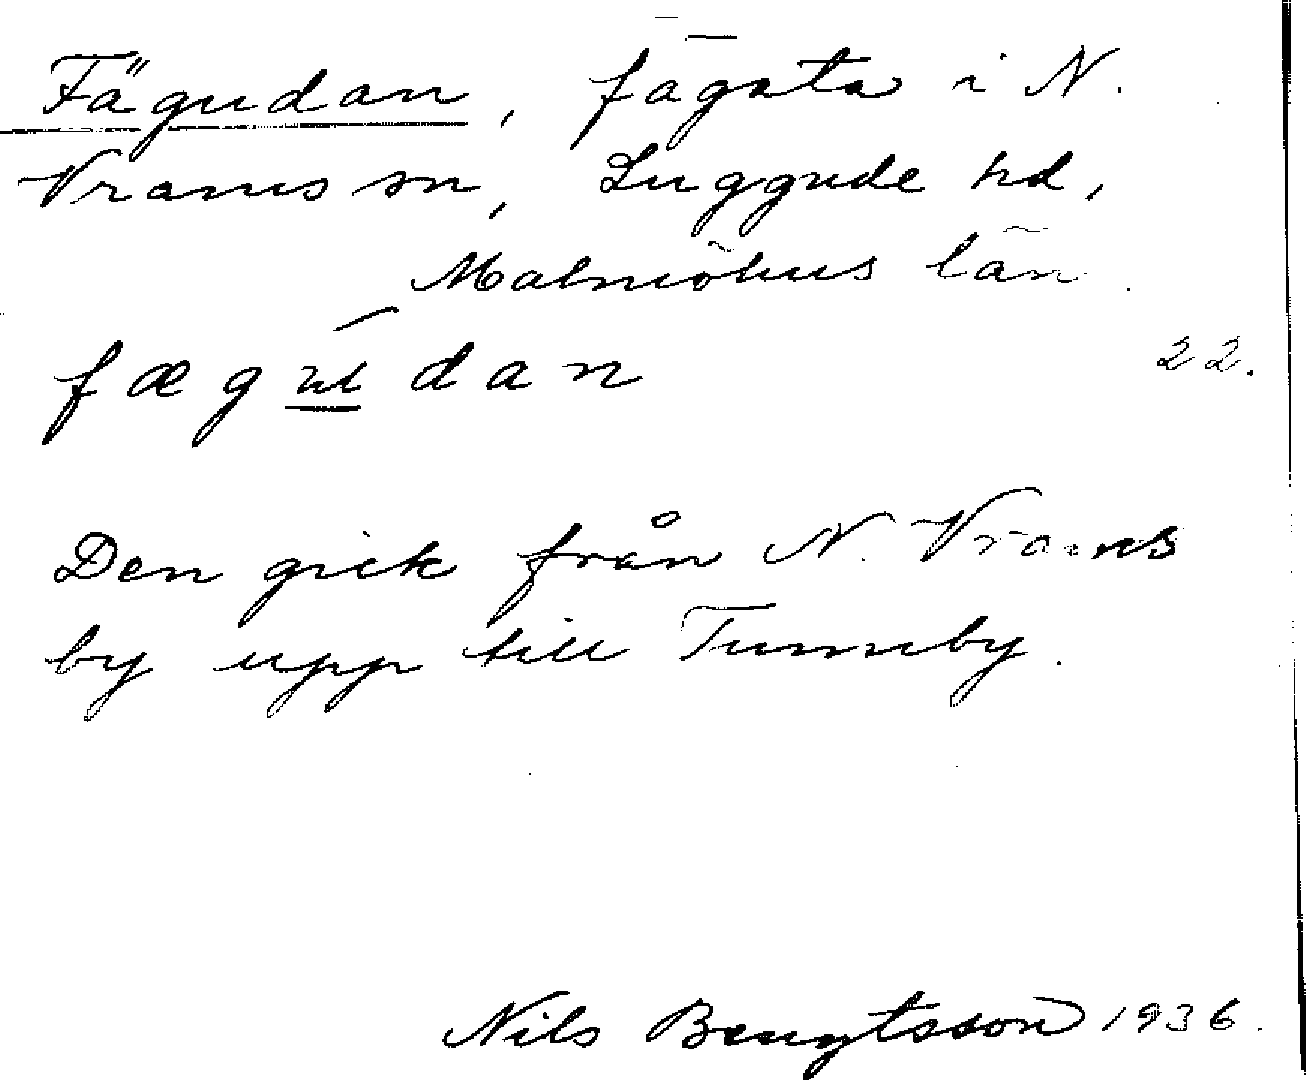 Fägudan, fägata i N.
Vrams sn, Luggude hd,
Malmöhus län.
fægudan 22.
Den gick från N. Vrams
by upp till Tunneby.
Nils Bengtsson 1936.